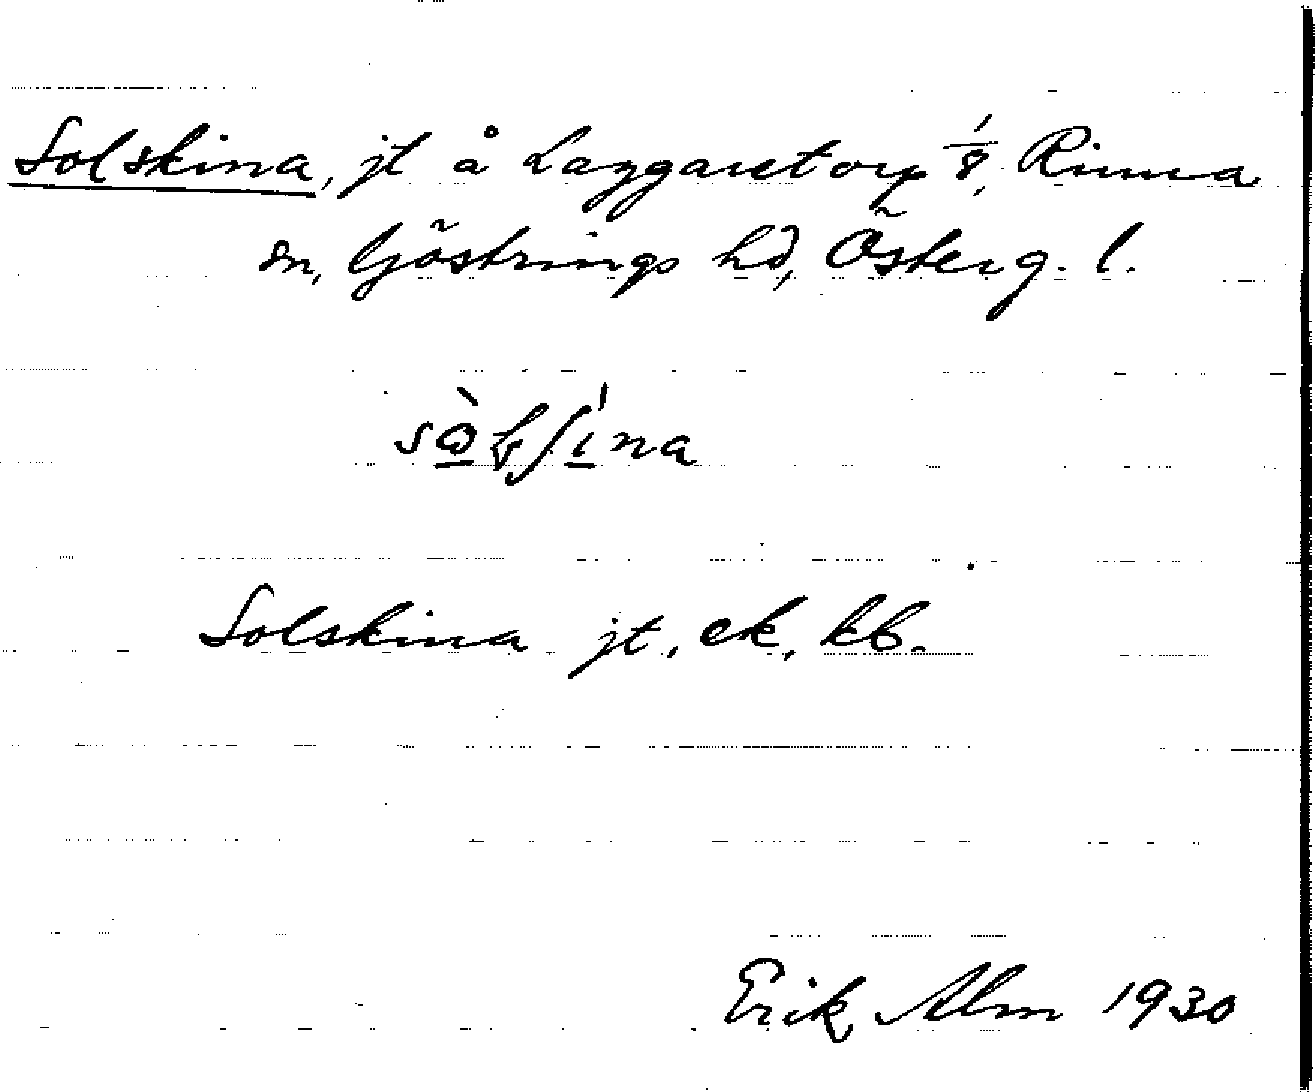 Solskina, jt å Laggaretorp 1/8, Rinna
sn, Göstrings hd, Österg. l.
Solskina jt, ek, kb.
Erik Alm 1930